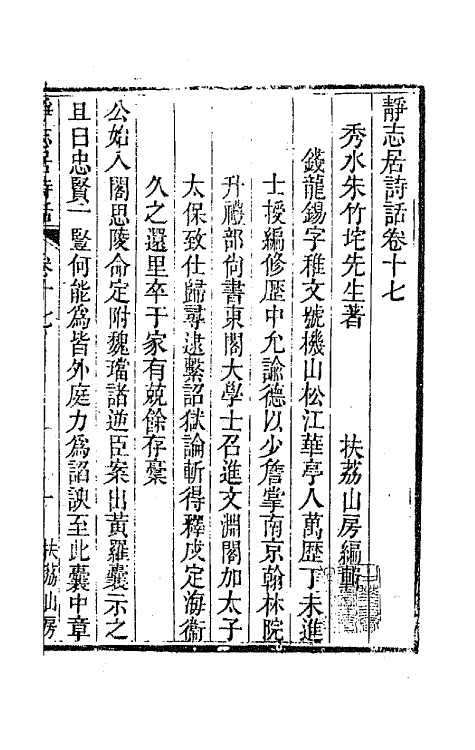 靜志居詩話卷十七
秀水朱竹垞先生著 扶荔山房編
錢龍錫字稚文號機山松江華亭人萬歷丁未進
士授編修歷中允諭德以少詹掌南京翰林院
升禮部尚書東閣大學士召進文淵閣加太子
太保致仕歸尋逮繫詔獄論斬得釋戍定海衞
久之還里卒于家有兢餘存稾
公始入閣思陵命定附魏璫諸逆臣案出黃羅囊示之
且曰忠賢一豎何能爲皆外庭力爲諂諛至此囊中章
靜志居詩話 卷十七 扶荔山房